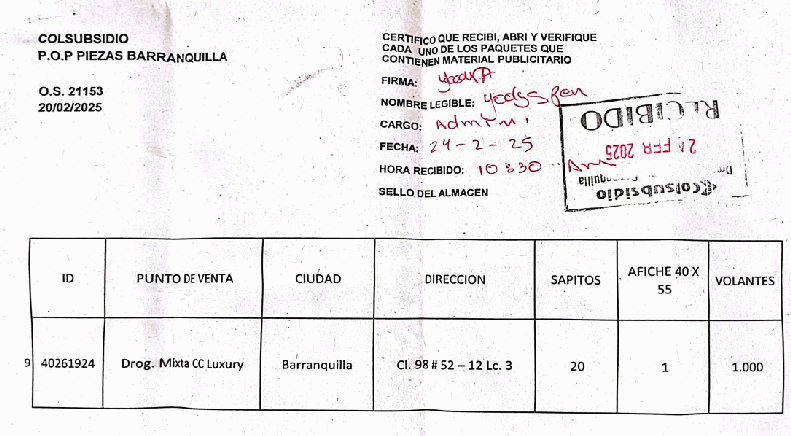 COLSUBSIDIO
P.O.P PIEZAS BARRANQUILLA
O.S. 21153
20/02/2025
CERTIFICO QUE RECIBI, ABRI Y VERIFIQUE
CADA UNO DE LOS PAQUETES QUE
CONTIENEN MATERIAL PUBLICITARIO
FIRMA:
NOMBRE LEGIBLE:
CARGO:
FECHA: 24-2-25
HORA RECIBIDO: 10:30 Am
SELLO DEL ALMACEN
RECIBIDO
FEB 2025
Colsubsidio
ID PUNTO DE VENTA CIUDAD DIRECCION SAPITOS AFICHE 40 X 55 VOLANTES
9 40261924 Drog. Mixta CC Luxury Barranquilla Cl. 98 # 52 – 12 Lc. 3 20 1 1.000